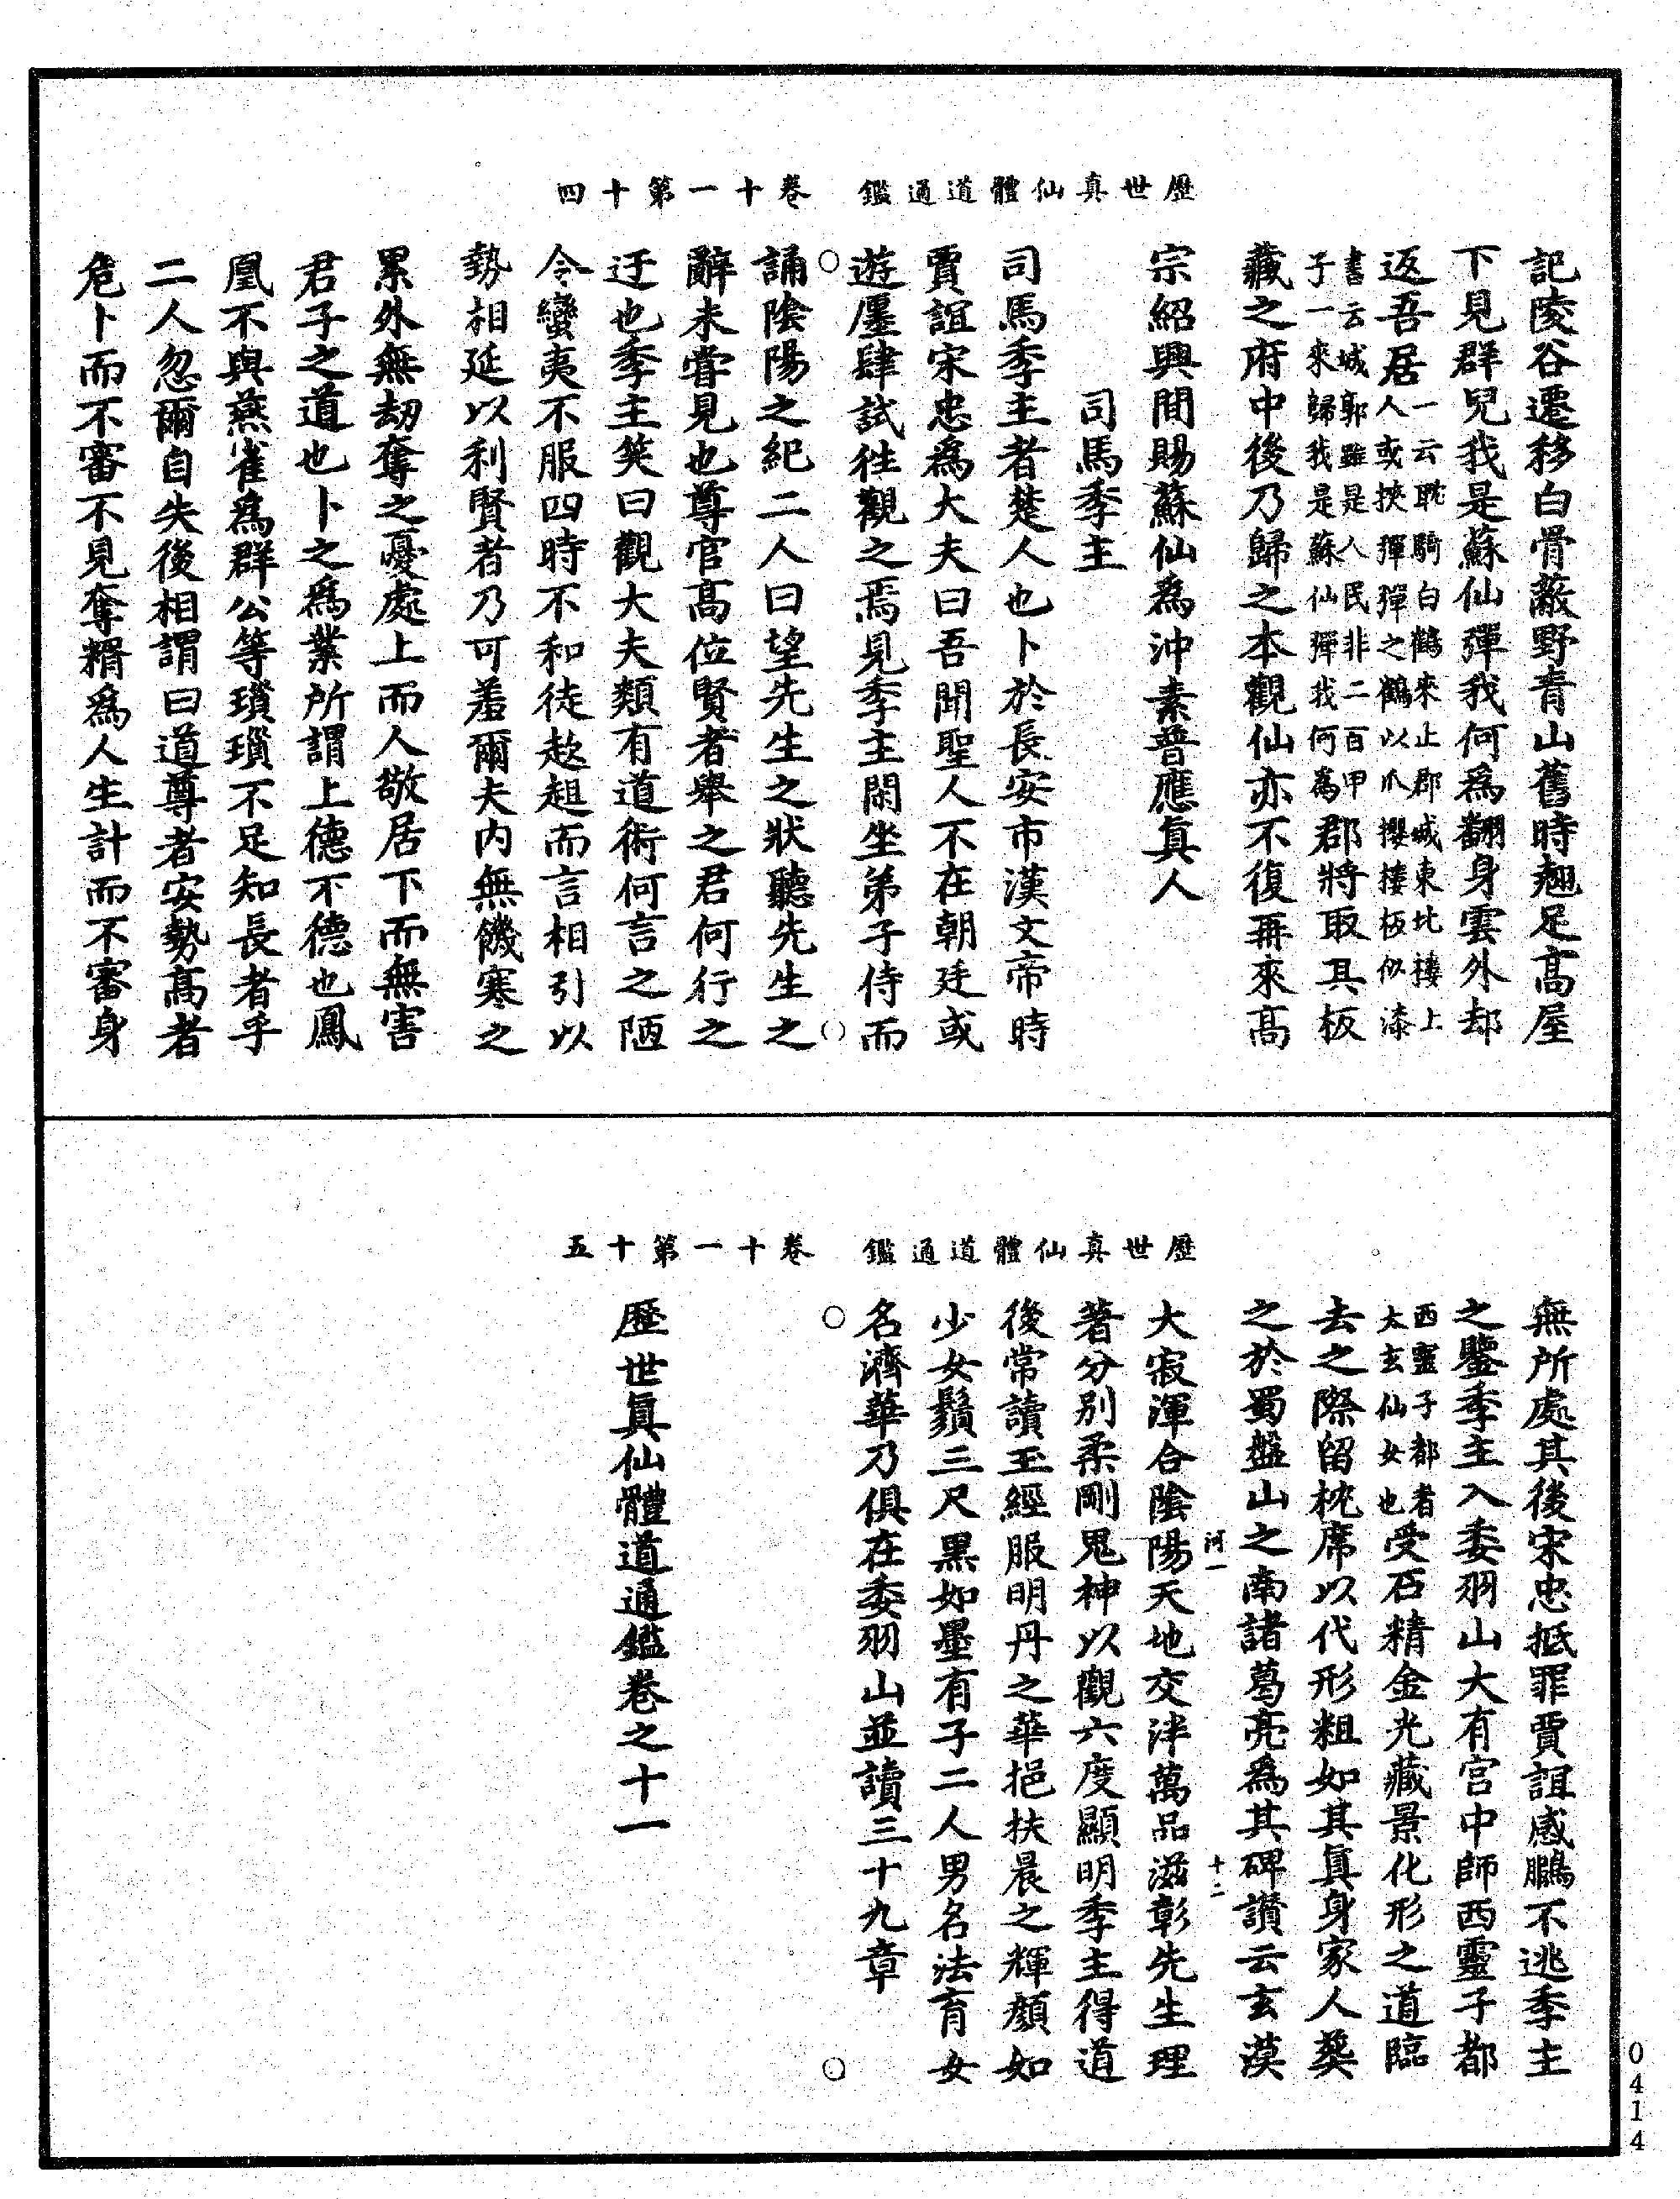 歷世真仙體道通鑑　卷十一第十四
記陵谷遷移白骨蔽野青山舊時翹足高屋
下見群兒我是蘇仙彈我何為翻身雲外却
返吾居一云耽騎白鶴來止郡城東北樓上人或挾彈彈之鶴以爪攫樓板似漆
書云城郭雖是人民非二百甲子一來歸我是蘇仙彈我何為郡將取其板
藏之府中後乃歸之本觀仙亦不復再來高
宗紹興間賜蘇仙為沖素普應真人
司馬季主
司馬季主者楚人也卜於長安市漢文帝時
賈誼宋忠為大夫曰吾聞聖人不在朝廷或
遊廛肆試往觀之焉見季主閑坐弟子侍而
誦陰陽之紀二人曰望先生之狀聽先生之
辭未嘗見也尊官高位賢者舉之君何行之
迂也季主笑曰觀大夫類有道術何言之陋
令蠻夷不服四時不和徒趑趄而言相引以
勢相延以利賢者乃可羞爾夫內無饑寒之
累外無劫奪之憂處上而人敬居下而無害
君子之道也卜之為業所謂上德不德也鳳
凰不與燕雀為群公等瑣瑣不足知長者乎
二人忽爾自失後相謂曰道尊者安勢高者
危卜而不審不見奪糈為人生計而不審身
歷世真仙體道通鑑　卷十一第十五
無所處其後宋忠抵罪賈誼感鵩不逃季主
之鑒季主入委羽山大有宮中師西靈子都
西靈子都者太玄仙女也受石精金光藏景化形之道臨
去之際留枕席以代形粗如其真身家人葬
之於蜀盤山之南諸葛亮為其碑讚云玄漠
河一　十二
大寂渾合陰陽天地交泮萬品滋彰先生理
著分別柔剛鬼神以觀六度顯明季主得道
後常讀玉經服明丹之華挹扶晨之輝顏如
少女鬚三尺黑如墨有子二人男名法育女
名濟華乃俱在委羽山並讀三十九章
歷世真仙體道通鑑卷之十一
0414